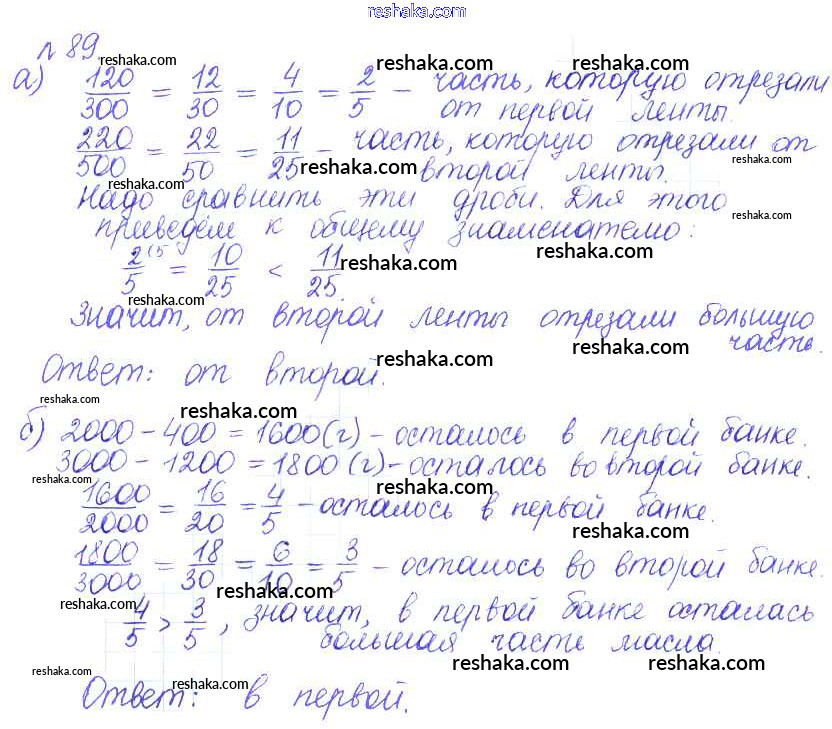 reshaka.com
№ 89 reshaka.com reshaka.com reshaka.com
а) 120/300 = 12/30 = 4/10 = 2/5 – часть, которую отрезали
от первой ленты.
220/500 = 22/50 = 11/25 – часть, которую отрезали от
второй ленты.
reshaka.com reshaka.com reshaka.com
Надо сравнить эти дроби. Для этого
приведём к общему знаменателю:
reshaka.com reshaka.com reshaka.com
2/5 (5 = 10/25 < 11/25
reshaka.com
Значит, от второй ленты отрезали большую
часть.
reshaka.com reshaka.com
Ответ: от второй.
reshaka.com reshaka.com reshaka.com
б) 2000 – 400 = 1600 (г) – осталось в первой банке.
3000 – 1200 = 1800 (г) – осталось во второй банке.
reshaka.com reshaka.com
1600/2000 = 16/20 = 4/5 – осталось в первой банке.
reshaka.com
1800/3000 = 18/30 = 6/10 = 3/5 – осталось во второй банке.
reshaka.com reshaka.com reshaka.com
4/5 > 3/5, значит, в первой банке осталась
большая часть масла.
reshaka.com reshaka.com reshaka.com
Ответ: в первой.
reshaka.com reshaka.com